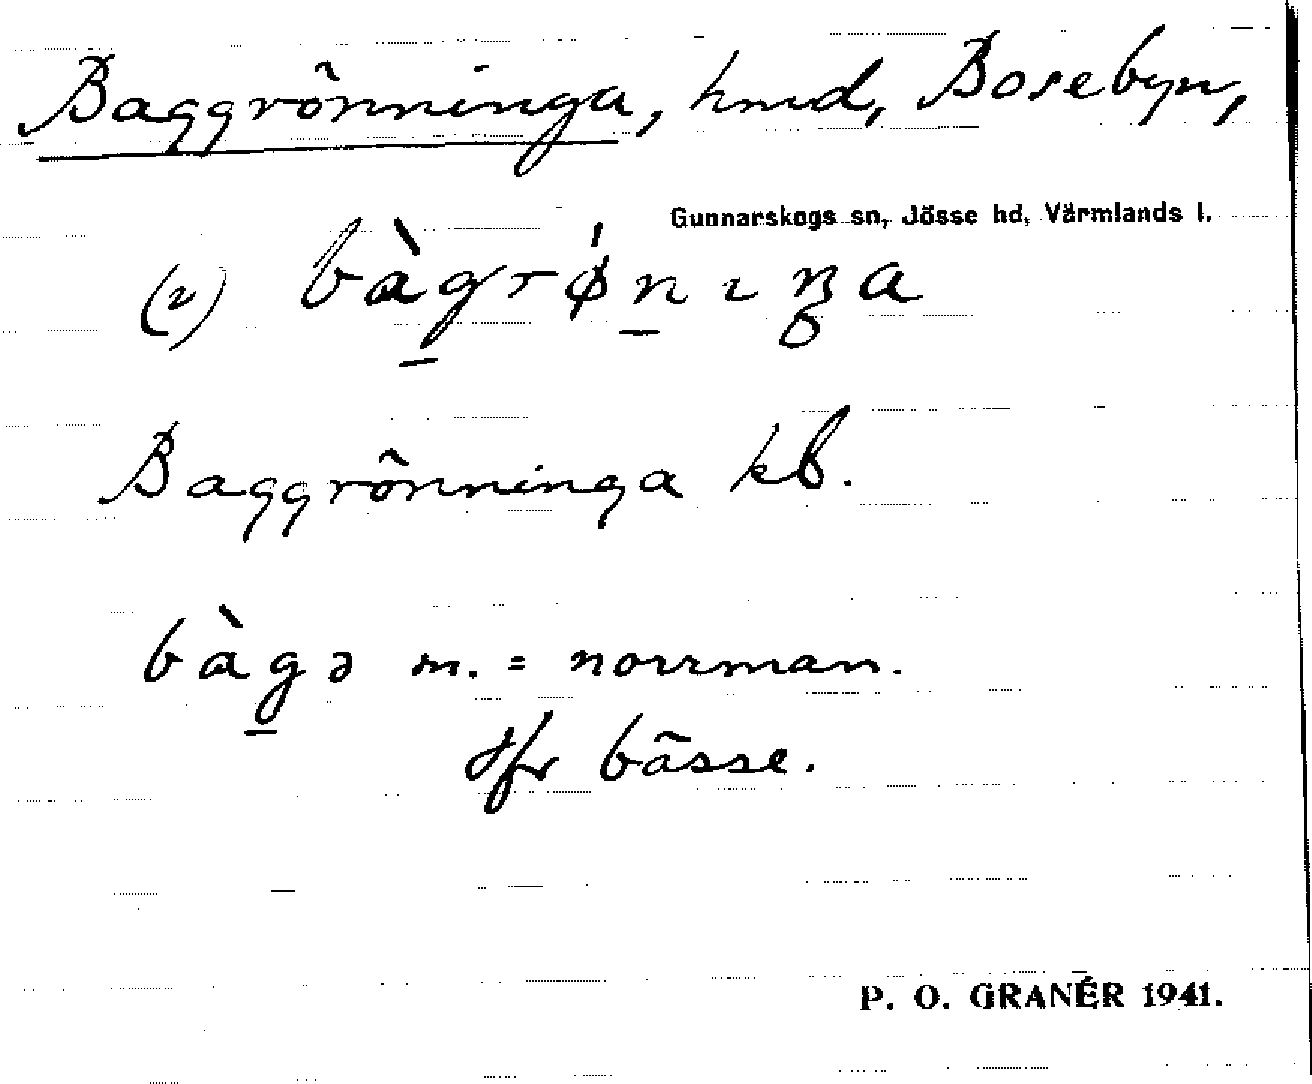 Baggrönninga, hmd, Bosebyn,
Gunnarskogs sn, Jösse hd, Värmlands l.
(2) bàg̲rǿn̲ıŋa
Baggrönninga kb.
bàg̲ə m. = norrman.
Jfr bässe.
P. O. GRANÉR 1941.